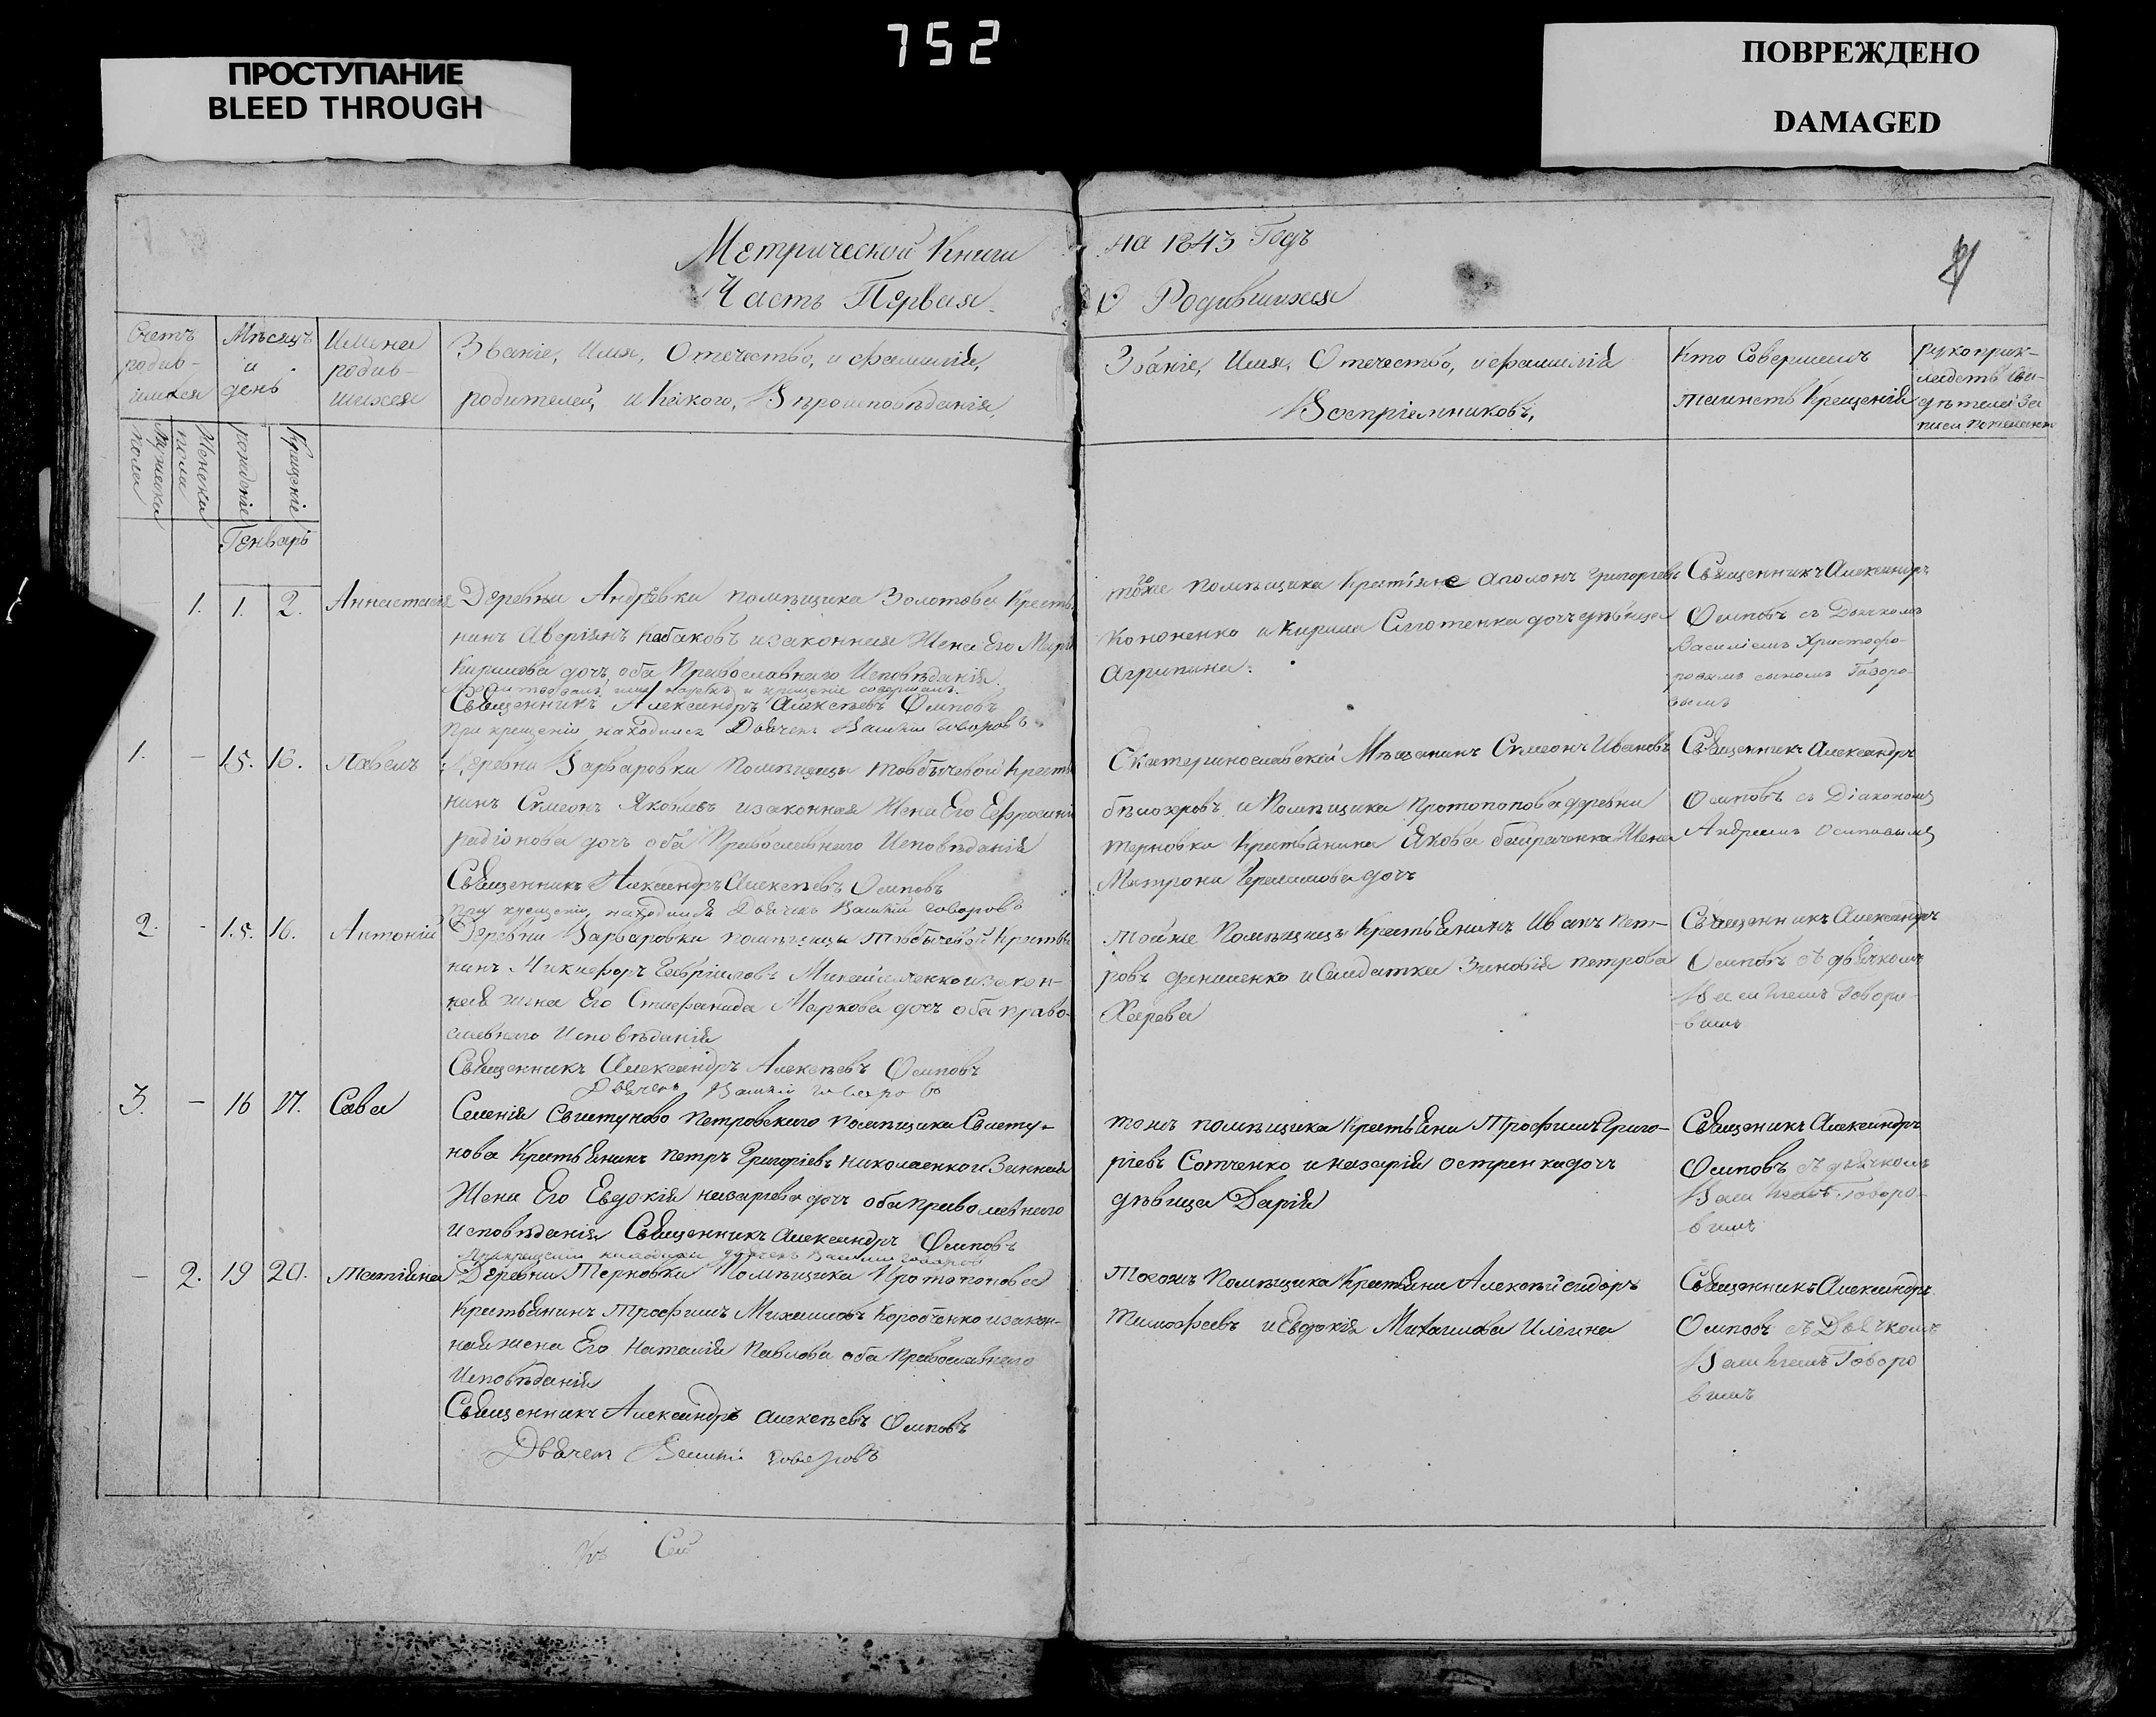 752
ПРОСТУПАНИЕ
BLEED THROUGH
ПОВРЕЖДЕНО
DAMAGED
Метрической Книги на 1843 Годъ
Часть Первая О Родившихся
Счетъ родив- шихся
Мѣсяцъ и день
Имена родив- шихся
Званіе, Имя, Отечество, и фамилія,
родителей, и какого, Вѣроисповѣданія,
Званіе, Имя, Отечество, и фамилія
Воспріемниковъ,
Кто Совершилъ
таинств Крещенія
рукоприк-
ладств сви-
дѣтелей за
писи
Мужеска пола
Женска пола
рожденіе
Крещеніе
Генварь
1. 1. 2. Аннастасія
Деревни Андрѣвки помѣщика Золотова Крестья
нинъ Аверіянъ Кабаковъ изаконная Жена Его Марія
Кирилова дочь, оба Православнаго Исповѣданія.
имя нарекъ и крещеніе совершилъ.
Священникъ Александръ Алексѣевъ Осиповъ
При крещеніи находился Дьячекъ Василій Говоровъ
тогоже помѣщика Крестьяне Аполонъ Григорьевъ
Кононенко и Кирила дочь дѣвица
Агрипина.
Священникъ Александръ
Осиповъ съ Дьячкомъ
Василіемъ Христофо-
ровымъ сыномъ Говоро-
вымъ
1. - 15. 16. Павелъ
Деревни Варваровки Помѣщицы Товбычевой Крестья
нинъ Симеонъ Яковлевъ изаконная Жена Его Ефросинія
радіонова дочь оба Православнаго Исповѣданія
Священникъ Александръ Алексѣевъ Осиповъ
При крещеніи находился Дьячекъ Василій Говоровъ
Екатеринославской Мѣщанинъ Симеонъ Ивановъ
бѣлозеровъ и Помѣщика Протопопова деревни
терновки Крестьянина Якова байраченка Жена
Матрона Герасимова дочь
Священникъ Александръ
Осиповъ съ Діакономъ
Андреемъ Осиповымъ
2. - 15. 16. Антоній
Деревни Варваровки помѣщицы Товбычевой Крестья
нинъ Никифоръ Гавріиловъ Михайленко изакон-
ная жена Его Стефанида Маркова дочь оба право-
славнаго Исповѣданія
Священникъ Александръ Алексѣевъ Осиповъ
Дьячекъ Василій Говоровъ
тойже Помѣщицы Крестьянинъ Иванъ пет-
ровъ и Салдатка Зиновія петрова
Харева
Священникъ Александръ
Осиповъ съ дьячкомъ
Василіемъ Говоро-
вымъ
3. - 16 17. Сава
Селенія Свистуново Петровскаго помѣщика Свисту-
нова Крестьянинъ петръ Григоріевъ николаенко и Законная
Жена Его Евдокія назарьева дочь оба православнаго
исповѣданія Священникъ Александръ Осиповъ
При крещеніи находился дьячекъ Василій Говоровъ
тогожъ помѣщика Крестьяни Трофимъ Григо-
ріевъ Сотченко и назарія остренка дочь
дѣвица Дарія
Священикъ Александръ
Осиповъ съ дьячкомъ
Василіемъ Говоро-
вымъ
- 2. 19 20. татіяна
Деревни Терновки Помѣщика Протопопова
Крестьянинъ Трофимъ Михаиловъ Коробченко изакон-
ная жена Его Наталія Павлова оба Православнаго
Исповѣданія
Священникъ Александръ Алексѣевъ Осиповъ
Дьячекъ Василій Говоровъ
Тогожъ Помѣщика Крестьяни Алексѣй сидоръ
Тимофеевъ и Евдокія Михаилова Илгина
Священникъ Александръ
Осиповъ съ Дьячкомъ
Василіемъ Говоро
вымъ
Къ Сей